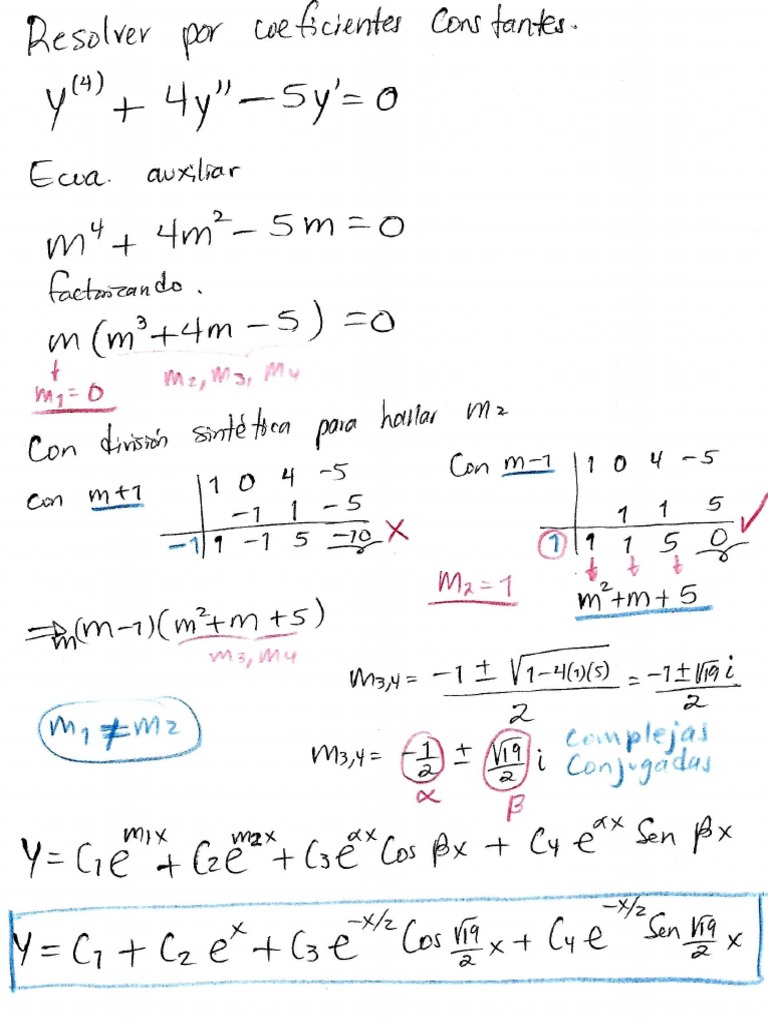 Resolver por coeficientes constantes.
y⁽⁴⁾ + 4y'' − 5y' = 0
Ecua. auxiliar
m⁴ + 4m² − 5m = 0
factorizando.
m (m³ + 4m − 5) = 0
m₁ = 0 m₂, m₃, m₄
Con división sintética para hallar m₂
con m+1
1 0 4 −5
−1 1 −5
−1 | 1 −1 5 −10 X
Con m−1
1 0 4 −5
1 1 5 ✓
1 | 1 1 5 0
m₂ = 1
m² + m + 5
⇒ m(m−1)(m² + m + 5)
m₃, m₄
m₃,₄ = (−1 ± √(1−4(1)(5)))/2 = (−1 ± √19 i)/2
m₁ ≠ m₂
m₃,₄ = −1/2 ± √19/2 i complejas
conjugadas
α β
Y = C₁e^(m₁x) + C₂e^(m₂x) + C₃e^(αx) Cos βx + C₄ e^(αx) Sen βx
Y = C₁ + C₂ e^x + C₃ e^(−x/2) Cos √19/2 x + C₄ e^(−x/2) Sen √19/2 x